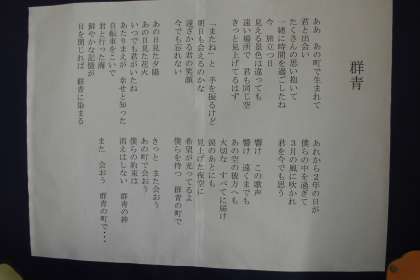 群青
ああ あの町で生まれて
君と出会い
たくさんの思い抱いて
一緒に時間を過ごしたね
今 旅立つ日
見える景色は違っても
遠い場所で 君も同じ空
きっと見上げてるはず
「またね」と 手を振るけど
明日も会えるのかな
遠ざかる君の笑顔
今でも忘れない
あの日見た夕陽
あの日見た花火
いつでも君がいたね
あたりまえが 幸せと知った
自転車をこいで
君と行った海
鮮やかな記憶が
目を閉じれば 群青に染まる
あれから2年の日が
僕らの中を過ぎて
3月の風に吹かれ
君を今でも思う
響け この歌声
響け 遠くまでも
あの空の彼方へも
大切な すべてに届け
涙のあとにも
見上げた夜空に
希望が光ってるよ
僕らを待つ 群青の町で
きっと また会おう
あの町で会おう
僕らの約束は
消えはしない 群青の絆
また 会おう 群青の町で・・・